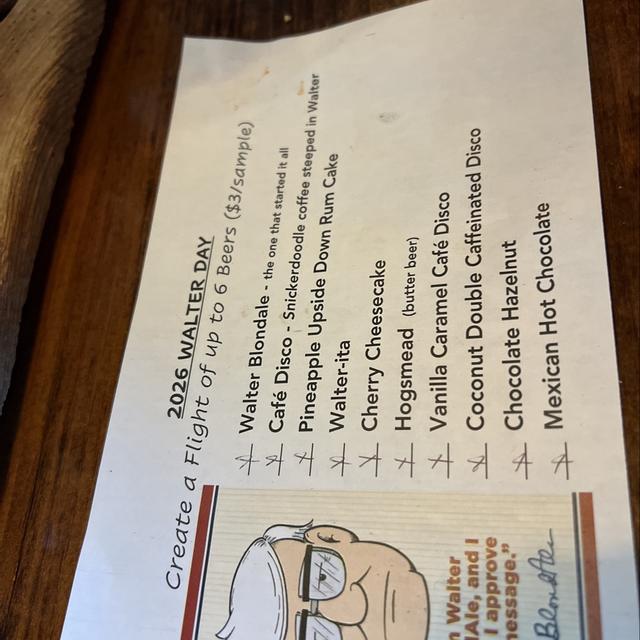 2026 WALTER DAY
Create a Flight of up to 6 Beers ($3/sample)
Walter Blondale - the one that started it all
Café Disco - Snickerdoodle coffee steeped in Walter
Pineapple Upside Down Rum Cake
Walter-ita
Cherry Cheesecake
Hogsmead (butter beer)
Vanilla Caramel Café Disco
Coconut Double Caffeinated Disco
Chocolate Hazelnut
Mexican Hot Chocolate
Walter
Ale, and I
I approve
essage."